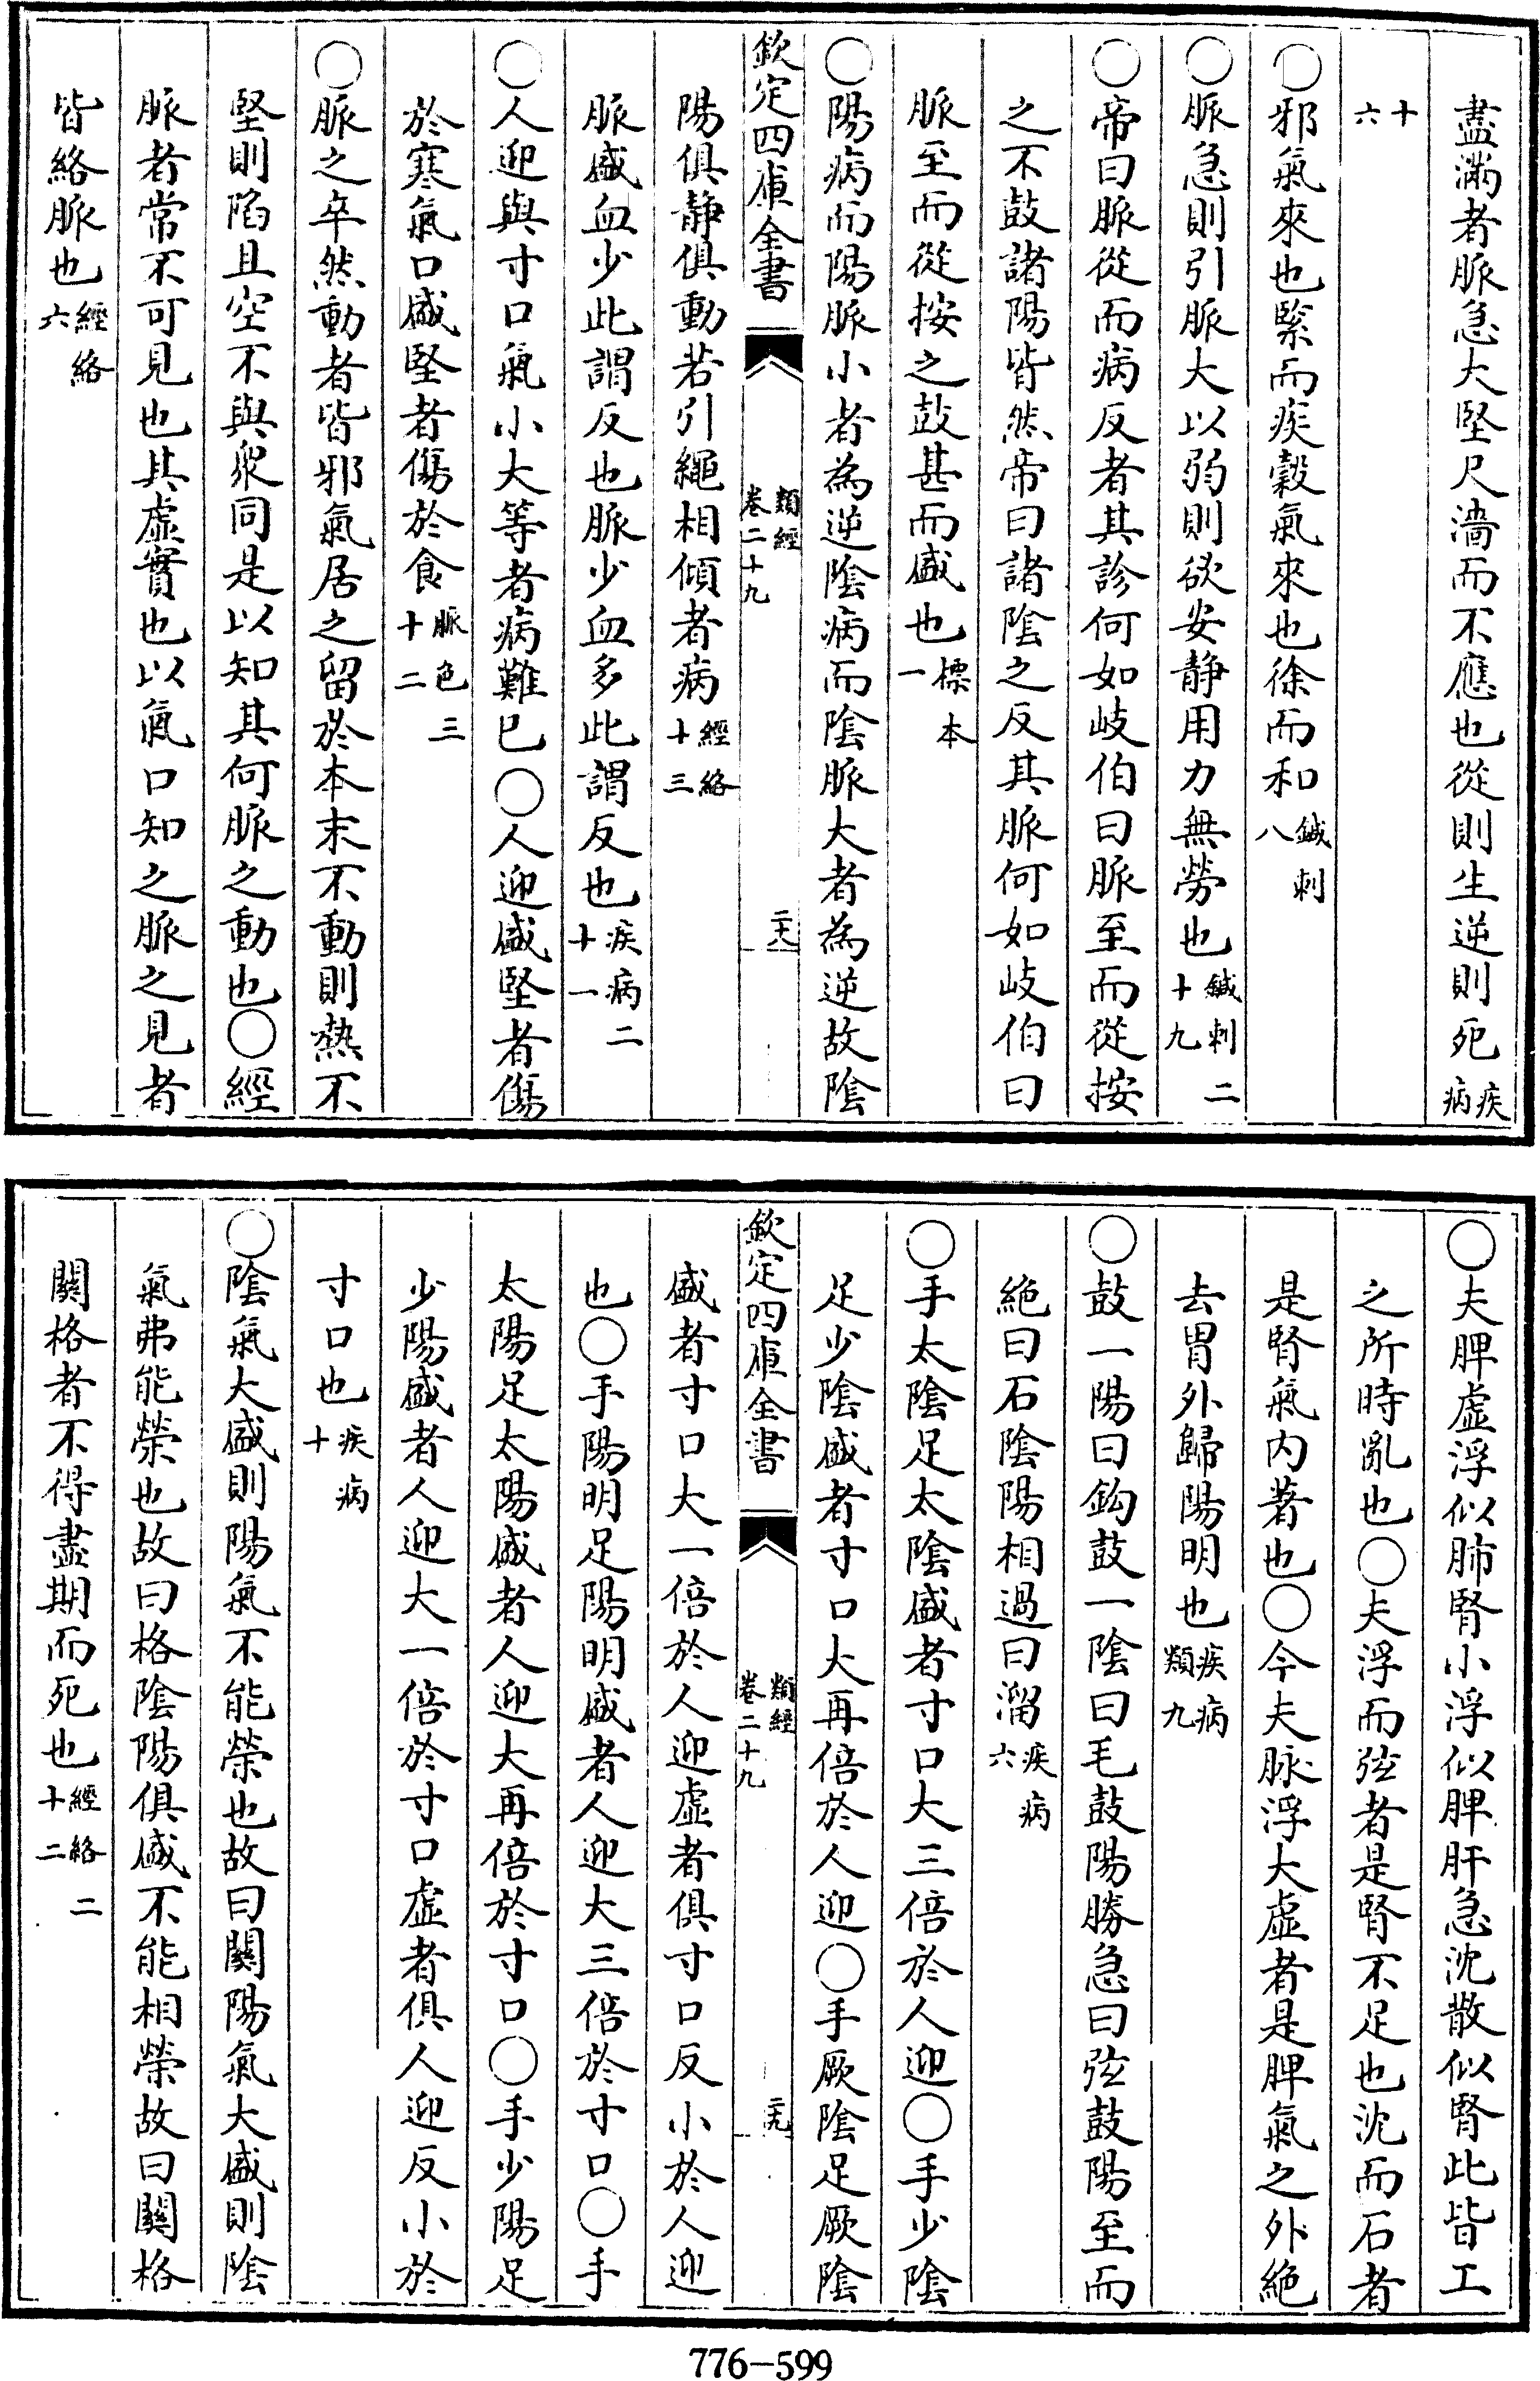 盡滿者脈急大堅尺濇而不應也從則生逆則死疾病
十六
○邪氣來也緊而疾穀氣來也徐而和鍼刺八
○脈急則引脈大以弱則欲安静用力無勞也鍼刺二十九
○帝曰脈從而病反者其診何如岐伯曰脈至而從按
之不鼓諸陽皆然帝曰諸陰之反其脈何如岐伯曰
脈至而從按之鼓甚而盛也標本一
○陽病而陽脈小者為逆陰病而陰脈大者為逆故陰
欽定四庫全書 類經卷二十九 二十八
陽俱静俱動若引繩相傾者病經絡十三
脈盛血少此謂反也脈少血多此謂反也疾病二十一
○人迎與寸口氣小大等者病難已○人迎盛堅者傷
於寒氣口盛堅者傷於食脈色三十二
○脈之卒然動者皆邪氣居之留於本末不動則熱不
堅則陷且空不與衆同是以知其何脈之動也○經
脈者常不可見也其虛實也以氣口知之脈之見者
皆絡脈也經絡六
○夫脾虛浮似肺腎小浮似脾肝急沈散似腎此皆工
之所時亂也○夫浮而弦者是腎不足也沈而石者
是腎氣内著也○今夫脉浮大虛者是脾氣之外絶
去胃外歸陽明也疾病類九
○鼓一陽曰鈎鼓一陰曰毛鼓陽勝急曰弦鼓陽至而
絶曰石陰陽相過曰溜疾病六
○手太陰足太陰盛者寸口大三倍於人迎○手少陰
足少陰盛者寸口大再倍於人迎○手厥陰足厥陰
欽定四庫全書 類經卷二十九 二十九
盛者寸口大一倍於人迎虛者俱寸口反小於人迎
也○手陽明足陽明盛者人迎大三倍於寸口○手
太陽足太陽盛者人迎大再倍於寸口○手少陽足
少陽盛者人迎大一倍於寸口虛者俱人迎反小於
寸口也疾病十
○陰氣大盛則陽氣不能榮也故曰關陽氣大盛則陰
氣弗能榮也故曰格陰陽俱盛不能相榮故曰關格
關格者不得盡期而死也經絡二十二
776-599